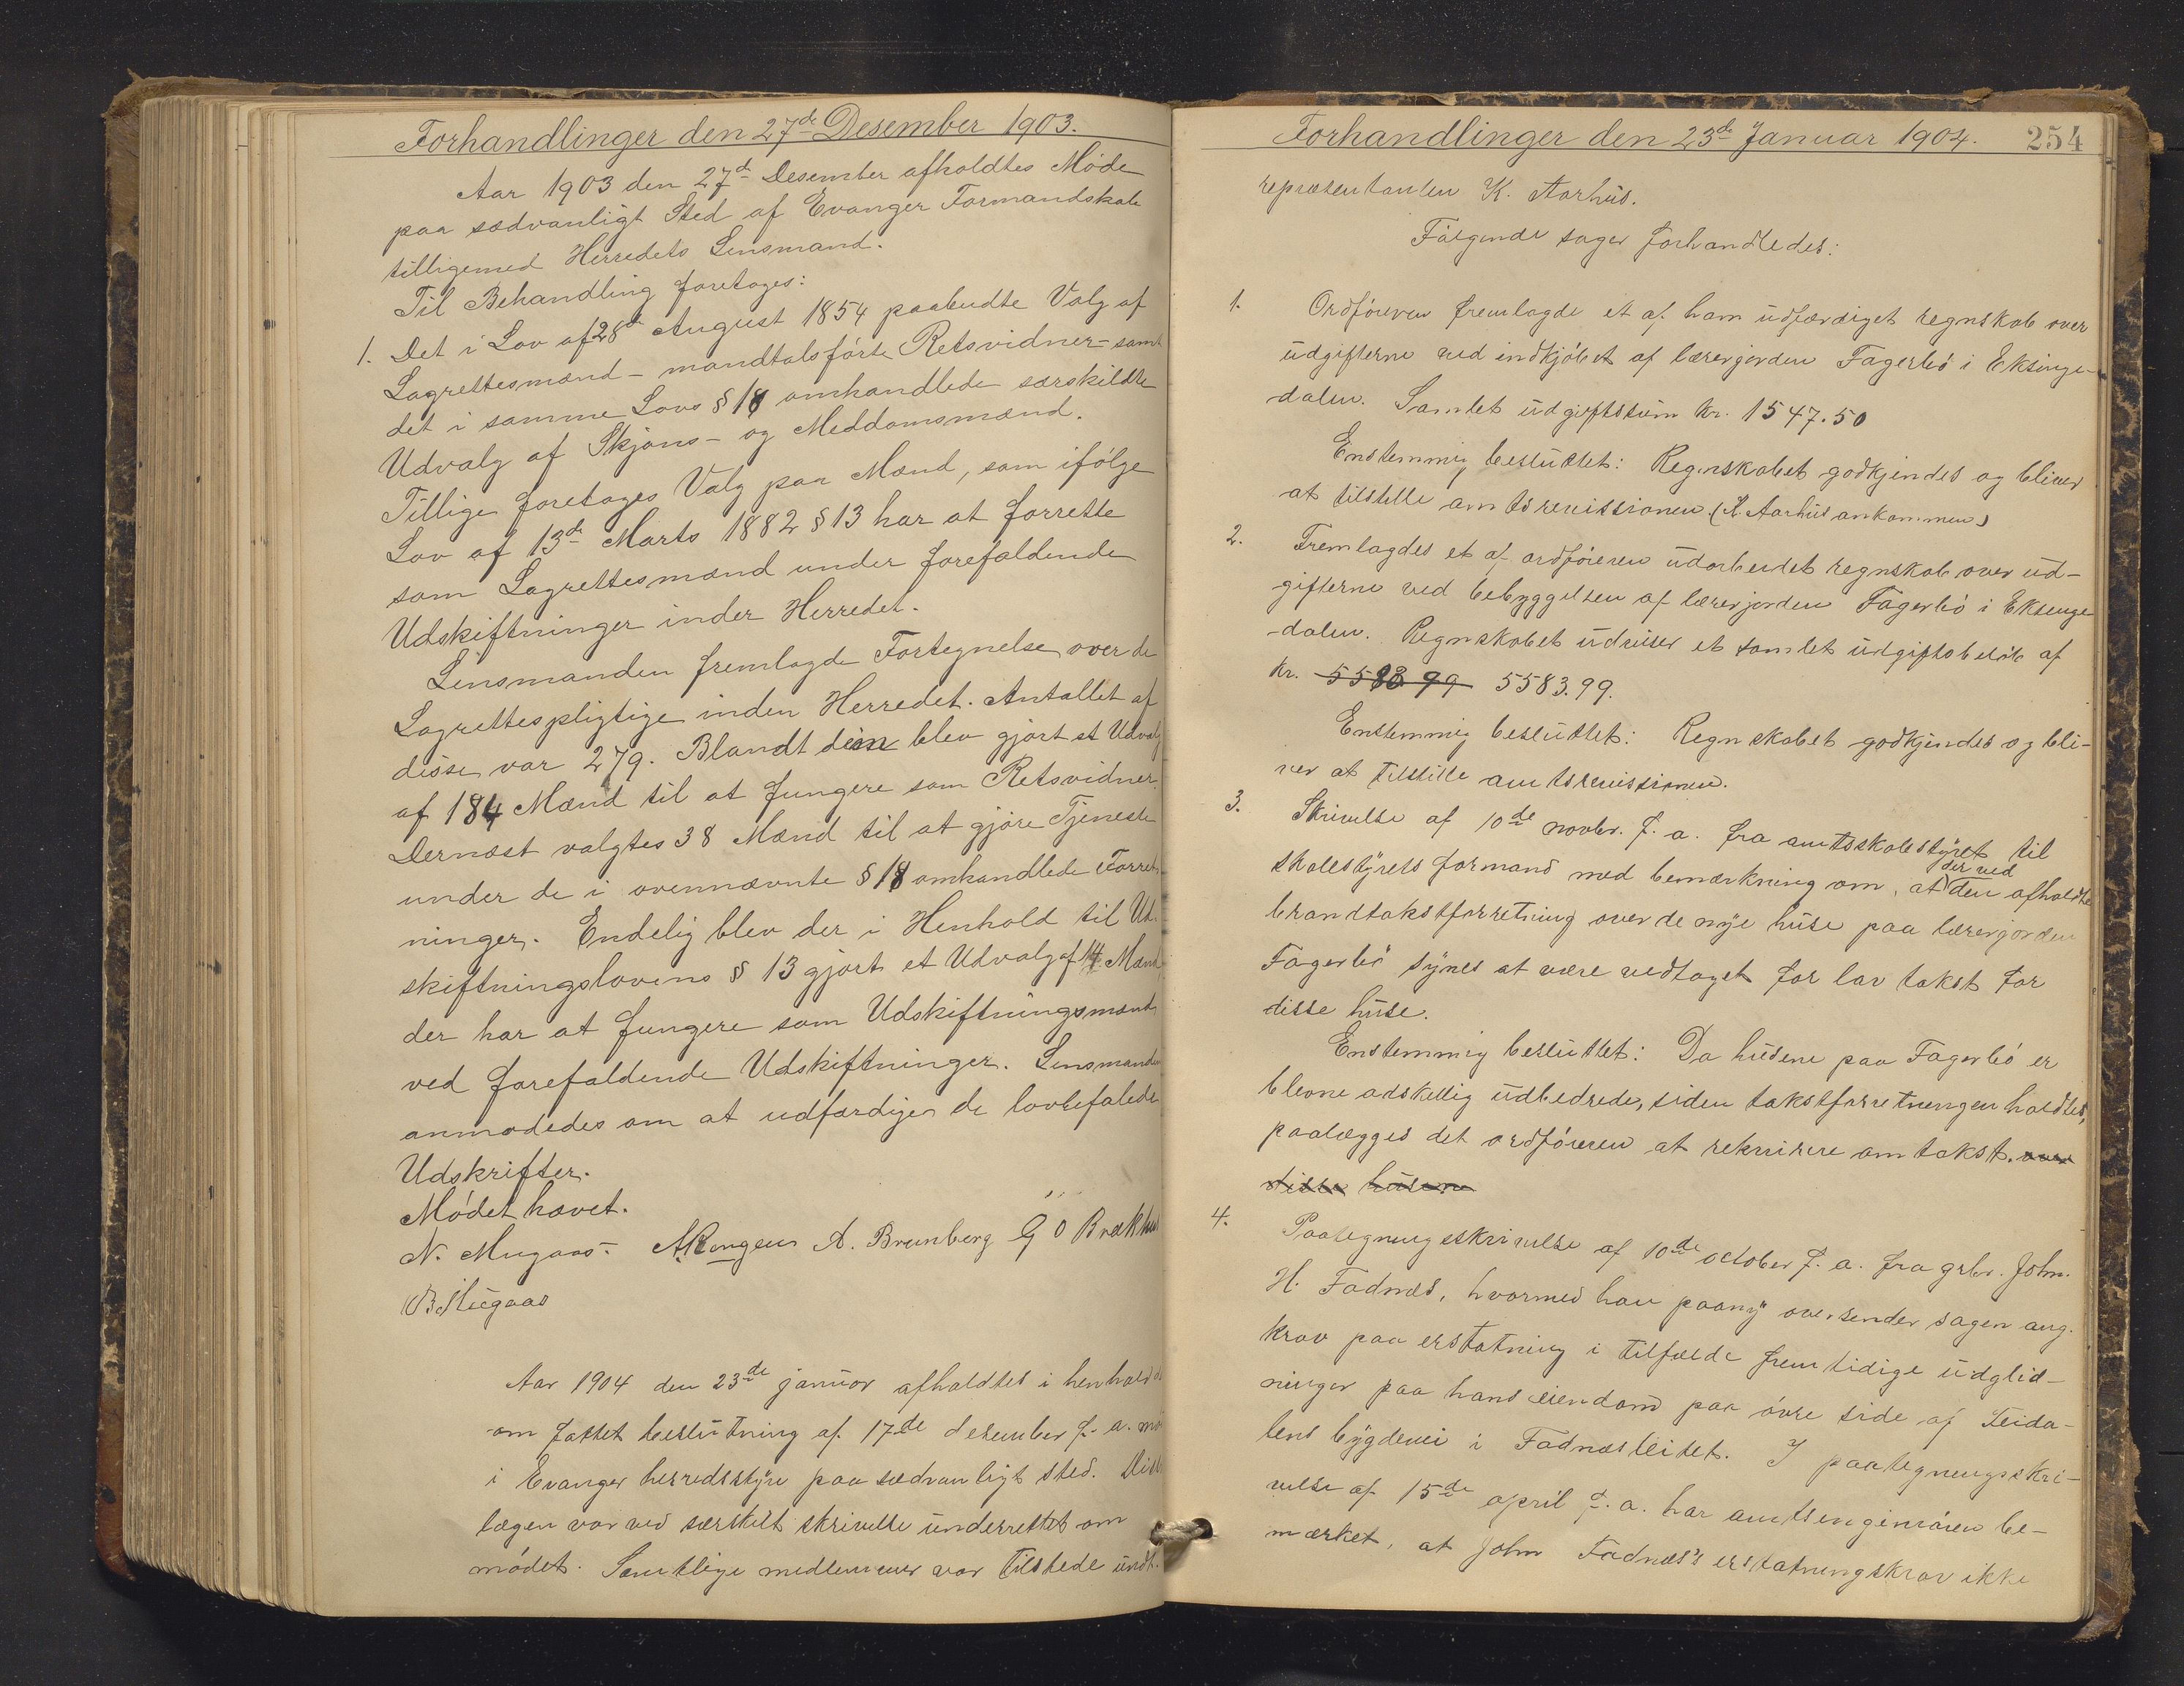 Forhandlinger den 27de Desember 1903.
Aar 1903 den 27de Desember afholdtes Møde
paa sædvanligt Sted af Evanger Formandskab
tilligemed Herredets Lensmand.
Til Behandling foretoges:
1. Det i Lov af 28de August 1854 paabudte Valg af
Lagrettesmænd - mandtalsførte Retsvidner - samt
det i samme Lovs § 18 omhandlede særskildte
Udvalg af Skjøns- og Meddomsmænd.
Tillige foretoges Valg paa Mænd, som ifølge
Lov af 13de Marts 1882 § 13 har at forrette
som Lagrettesmænd under forefaldende
Udskiftninger inder Herredet.
Lensmanden fremlagde Fortegnelse over de
Lagrettespligtige inden Herredet. Antallet af
disse var 279. Blandt dem blev gjort et Udvalg
af 184 Mænd til at fungere som Retsvidner.
Dernæst valgtes 38 Mænd til at gjøre Tjeneste
under de i ovennævnte § 18 omhandlede Forret-
ninger. Endelig blev der i Henhold til Ud-
skiftningslovens § 13 gjort et Udvalg af 14 Mænd
der har at fungere som Udskiftningsmænd
ved forefaldende Udskiftninger. Lensmanden
anmodedes om at udfærdige de lovbefalede
Udskrifter.
Mødet hævet.
N. Mugaas. A. Brunberg G O Brækhus
B Mugaas
Aar 1904 den 23de januar afholdtes i henhold
om fattet beslutning af 17de desember f. a. mø
i Evanger herredsstyre paa sædvanligt sted. Distr
lægen var ved særskilt skrivelse underrettet om
mødet. Samtlige medlemmer var tilstede undt.
Forhandlinger den 23de Januar 1904. 254
repræsentanten K. Aarhus.
Følgende sager forhandledes:
1. Ordføreren fremlagde et af ham udfærdiget regnskab over
udgifterne ved indkjøbet af lærerjorden Fagerbø i Eksinge-
dalen. Samlet udgiftssum kr. 1547.50
Enstemmig besluttet: Regnskabet godkjendes og bliver
at tilstille amtsrevissionen. (K. Aarhus ankommen)
2. Fremlagdes et af ordføreren udarbeidet regnskab over ud-
gifterne ved bebyggelsen af lærerjorden Fagerbø i Eksinge
-dalen. Regnskabet udviser et samlet udgiftsbeløb af
kr. 5583.99 5583.99.
Enstemmig besluttet: Regnskabet godkjendes og bli-
ver at tilstille amtsrevissionen.
3. Skrivelse af 10de novbr. f. a. fra amtsskolestyret til
skolestyrets formand med bemærkning om, at der ved den afholdte
brandtakstforretning over de nye huse paa lærerjorden
Fagerbø synes at være vedtaget for lav takst for
disse huse.
Enstemmig besluttet: Da husene paa Fagerbø er
blevne adskellig udbedrede, siden takstforretningen holdtes,
paalægges det ordføreren at rekvirere om takst. over
disse husene
4. Paategningsskrivelse af 10de october f. a. fra grbr. John.
H. Fadnæs, hvormed han paany oversender sagen ang.
krav paa erstatning i tilfælde fremtidige udglid-
ninger paa hans eiendom paa øvre side af Teida-
lens bygdevei i Fadnæsleitet. I paategningsskri-
velse af 15de april f. a. har amtsingeniøren be-
mærket, at John Fadnæs's erstatningskrav ikke